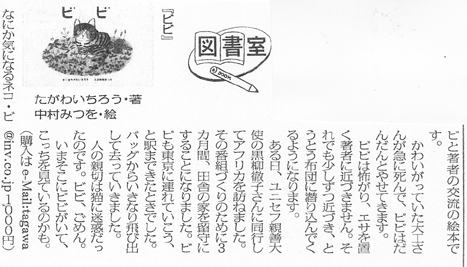 図書室
『ビビ』
ビビ
たがわいちろう・著
中村みつを・絵
なにか気になるネコ・ビ
ビと著者の交流の絵本で
す。
かわいがっていた犬士さ
んが急に死んで、ビビはだ
んだんとやせてきます。
ビビは怖がり、エサを置
く著者に近づきません。そ
れでも少しずつ近づき、と
うとう布団に潜り込んでく
るようになります。
ある日、ユニセフ親善大
使の黒柳徹子さんに同行し
てアフリカを訪ねました。
その番組づくりのために3
カ月間、田舎の家を留守に
することになりました。ビ
ビも東京に連れていこう、
と駅まできたときでした。
バッグからいきなり飛び出
して去っていきました。
人の親切は猫に迷惑だっ
たのです。ビビ、ごめん。
いまそこにビビがいて、
こっちを見ているのかも。
(購入は e-Mailitagawa
@inv.co.jp 1000円)